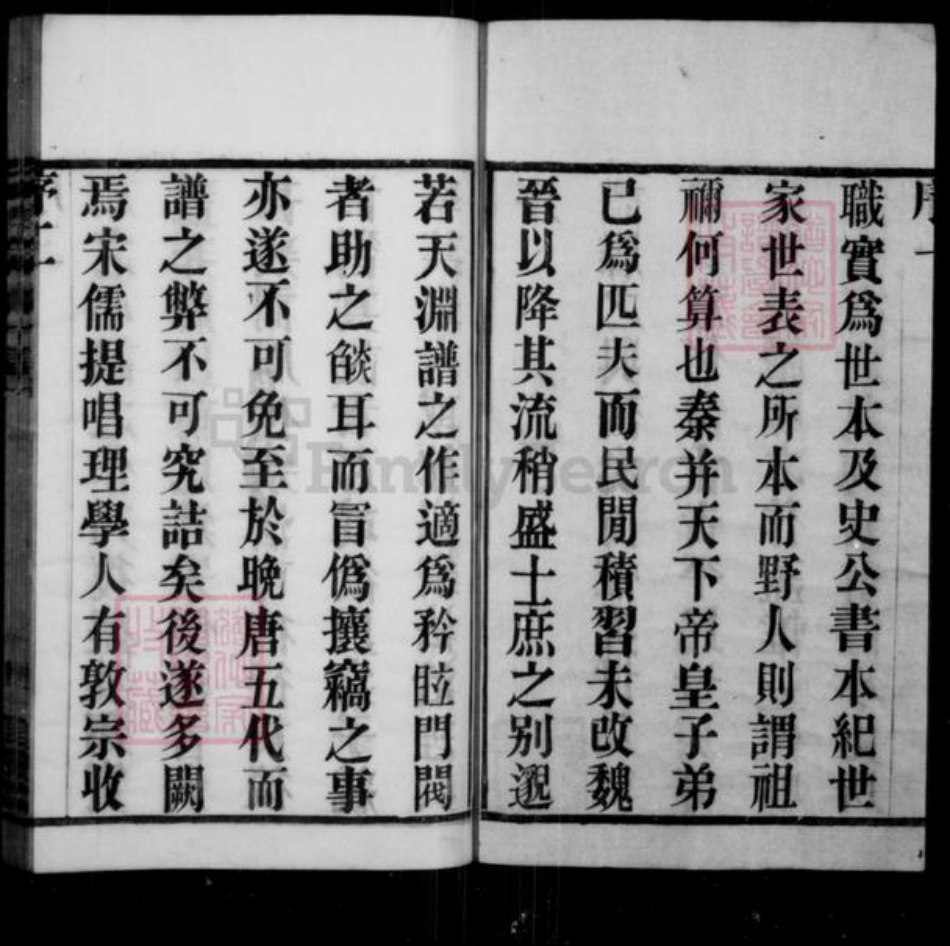 職實爲世本及史公書本紀世
家世表之所本而野人則謂祖
禰何算也秦并天下帝皇子弟
已爲匹夫而民閒積習未改魏
晉以降其流稍盛士庶之別邈
若天淵譜之作適爲矜眩門閥
者助之燄耳而冒僞攘竊之事
亦遂不可免至於晚唐五代而
譜之弊不可究詰矣後遂多闕
焉宋儒提唱理學人有敦宗收
序二